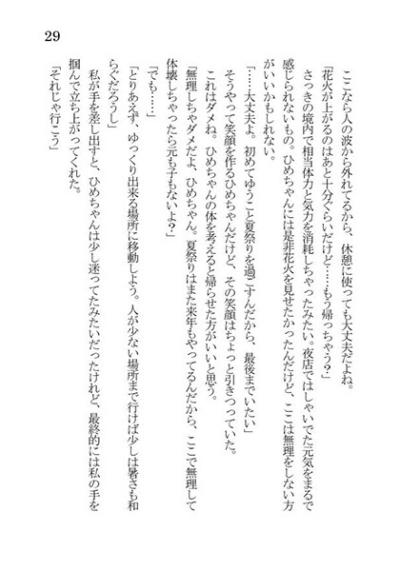 29
ここなら人の波から外れてるから、休憩に使っても大丈夫だよね。
「花火が上がるのはあと十分ぐらいだけど……もう帰っちゃう？」
さっきの境内で相当体力と気力を消耗しちゃったみたい。夜店ではしゃいでた元気をまるで
感じられないもの。ひめちゃんには是非花火を見せたかったんだけど、ここは無理をしない方
がいいかもしれない。
「……大丈夫よ。初めてゆうこと夏祭りを過ごすんだから、最後までいたい」
そうやって笑顔を作るひめちゃんだけど、その笑顔はちょっと引きつっていた。
これはダメね。ひめちゃんの体を考えると帰らせた方がいいと思う。
「無理しちゃダメだよ、ひめちゃん。夏祭りはまた来年もやってるんだから、ここで無理して
体壊しちゃったら元も子もないよ？」
「でも……」
「とりあえず、ゆっくり出来る場所に移動しよう。人が少ない場所まで行けば少しは暑さも和
らぐだろうし」
私が手を差し出すと、ひめちゃんは少し迷ってたみたいだったけれど、最終的には私の手を
掴んで立ち上がってくれた。
「それじゃ行こう」